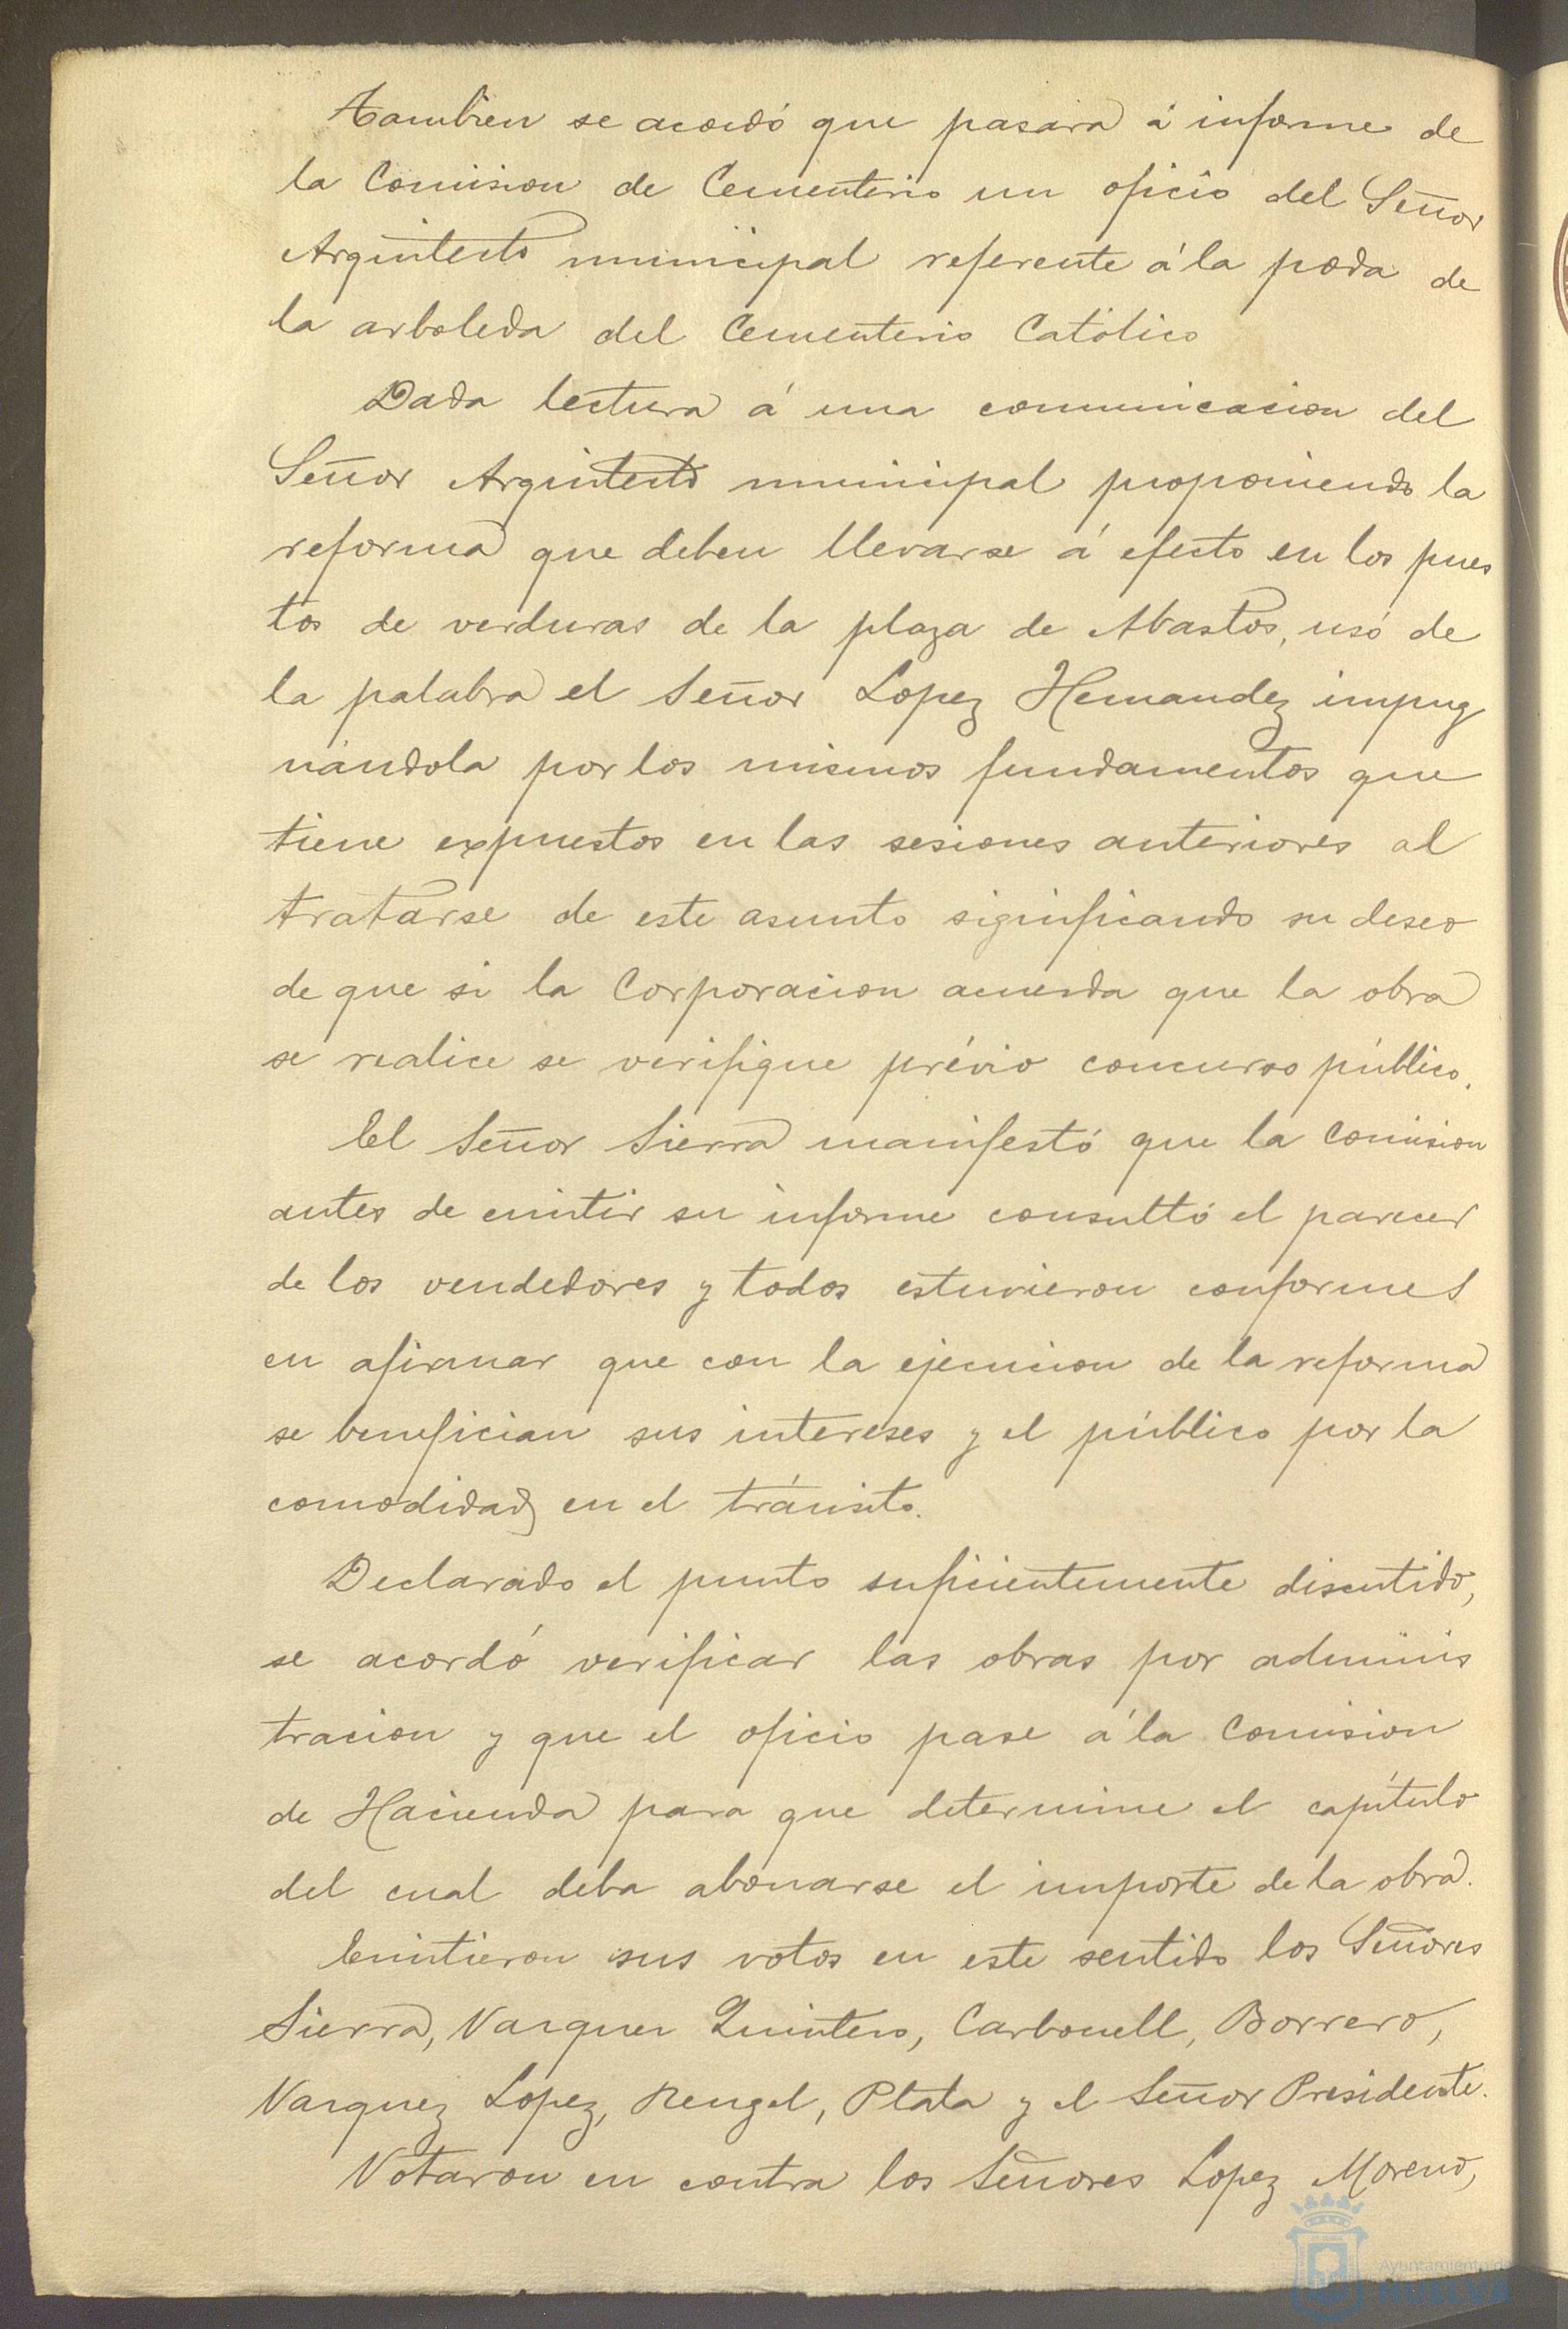 Tambien se acordó que pasara á informe de
la Comision de Cementerio un oficio del Señor
Arquitecto municipal referente á la poda de
la arboleda del Cementerio Católico
Dada lectura á una comunicacion del
Señor Arquitecto municipal proponiendo la
reforma que deben llevarse á efecto en los pues
tos de verduras de la plaza de Abastos, usó de
la palabra el Señor Lopez Hernandez impug
nándola por los mismos fundamentos que
tiene expuestos en las sesiones anteriores al
tratarse de este asunto significando su deseo
de que si la Corporacion acuerda que la obra
se realice se verifique prévio concurso público.
El Señor Sierra manifestó que la Comision
antes de emitir su informe consultó el parecer
de los vendedores y todos estuvieron conformes
en afirmar que con la ejecucion de la reforma
se benefician sus intereses y el público por la
comodidad en el tránsito.
Declarado el punto suficientemente discutido,
se acordó verificar las obras por adminis
tracion y que el oficio pase á la Comision
de Hacienda para que determine el capítulo
del cual deba abonarse el importe de la obra.
Emitieron sus votos en este sentido los Señores
Sierra, Vazquez Quintero, Carbonell, Borrero,
Vazquez Lopez, Rengel, Plata y el Señor Presidente.
Votaron en contra los Señores Lopez Moreno,
Ayuntamiento de
HUELVA